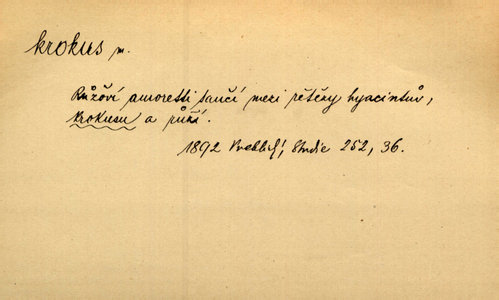 krokus m.
Růžoví amoretti tančí mezi řetězy hyacintů,
krokusu a růží.
1892 Vrchlický, Studie 252, 36.